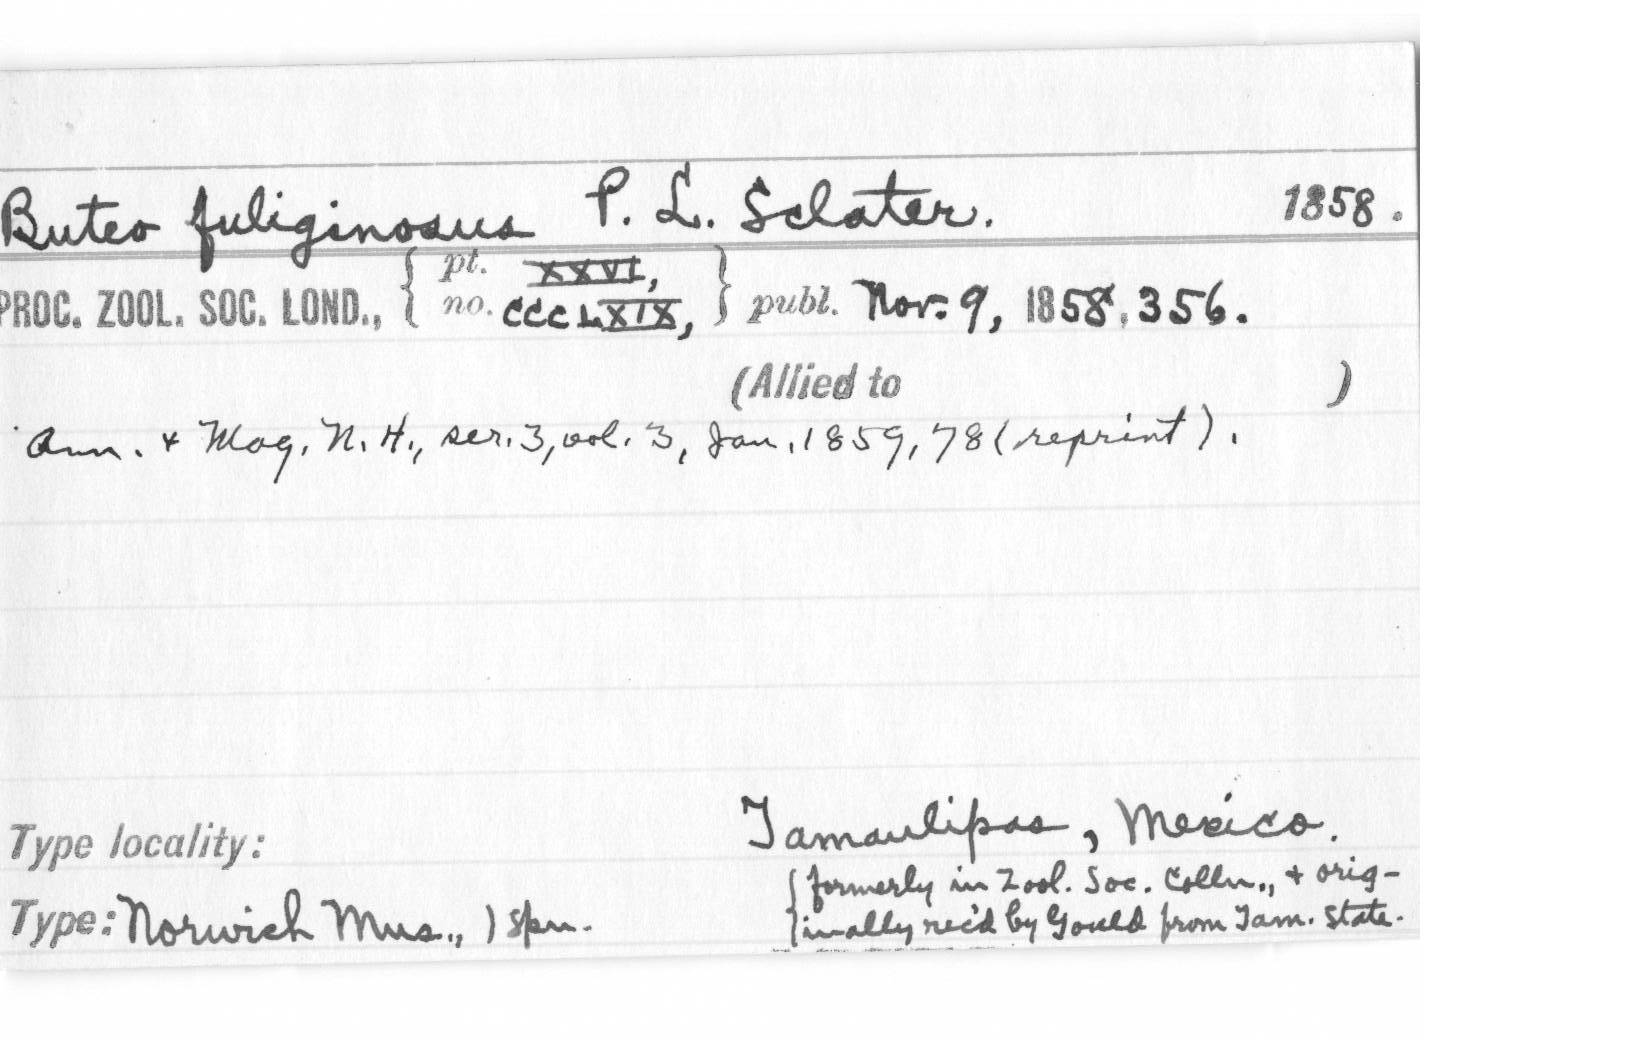 Buteo fuliginosus P. L. Sclater. 1858.
PROC. ZOOL. SOC. LOND., { pt. XXVI, no. CCCLXIX, } publ. Nov. 9, 1858, 356.
(Allied to )
Ann. & Mag. N. H., ser. 3, vol. 3, Jan. 1859, 78 (reprint).
Type locality: Tamaulipas, Mexico.
{formerly in Zool. Soc. Colln., & orig-
Type: Norwich Mus., 1 spn. inally rec'd by Gould from Tam. State.